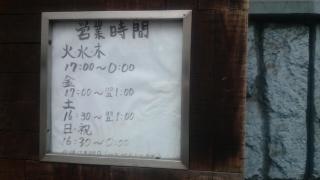 営業時間
火水木
17:00～0:00
金
17:00～翌1:00
土
16:30～翌1:00
日・祝
16:30～0:00